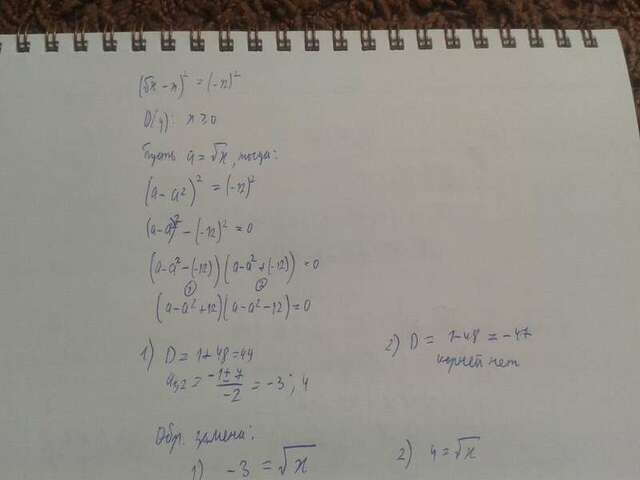 (√x - x)² = (-12)²
D(y): x ≥ 0
Пусть a = √x, тогда:
(a - a²)² = (-12)²
(a - a²)² - (-12)² = 0
(a - a² - (-12)) (a - a² + (-12)) = 0
① ②
(a - a² + 12)(a - a² - 12) = 0
1) D = 1 + 48 = 44
2) D = 1 - 48 = -47
a₁,₂ = (-1 ± 7)/(-2) = -3; 4
корней нет
Обр. замена:
1) -3 = √x
2) 4 = √x